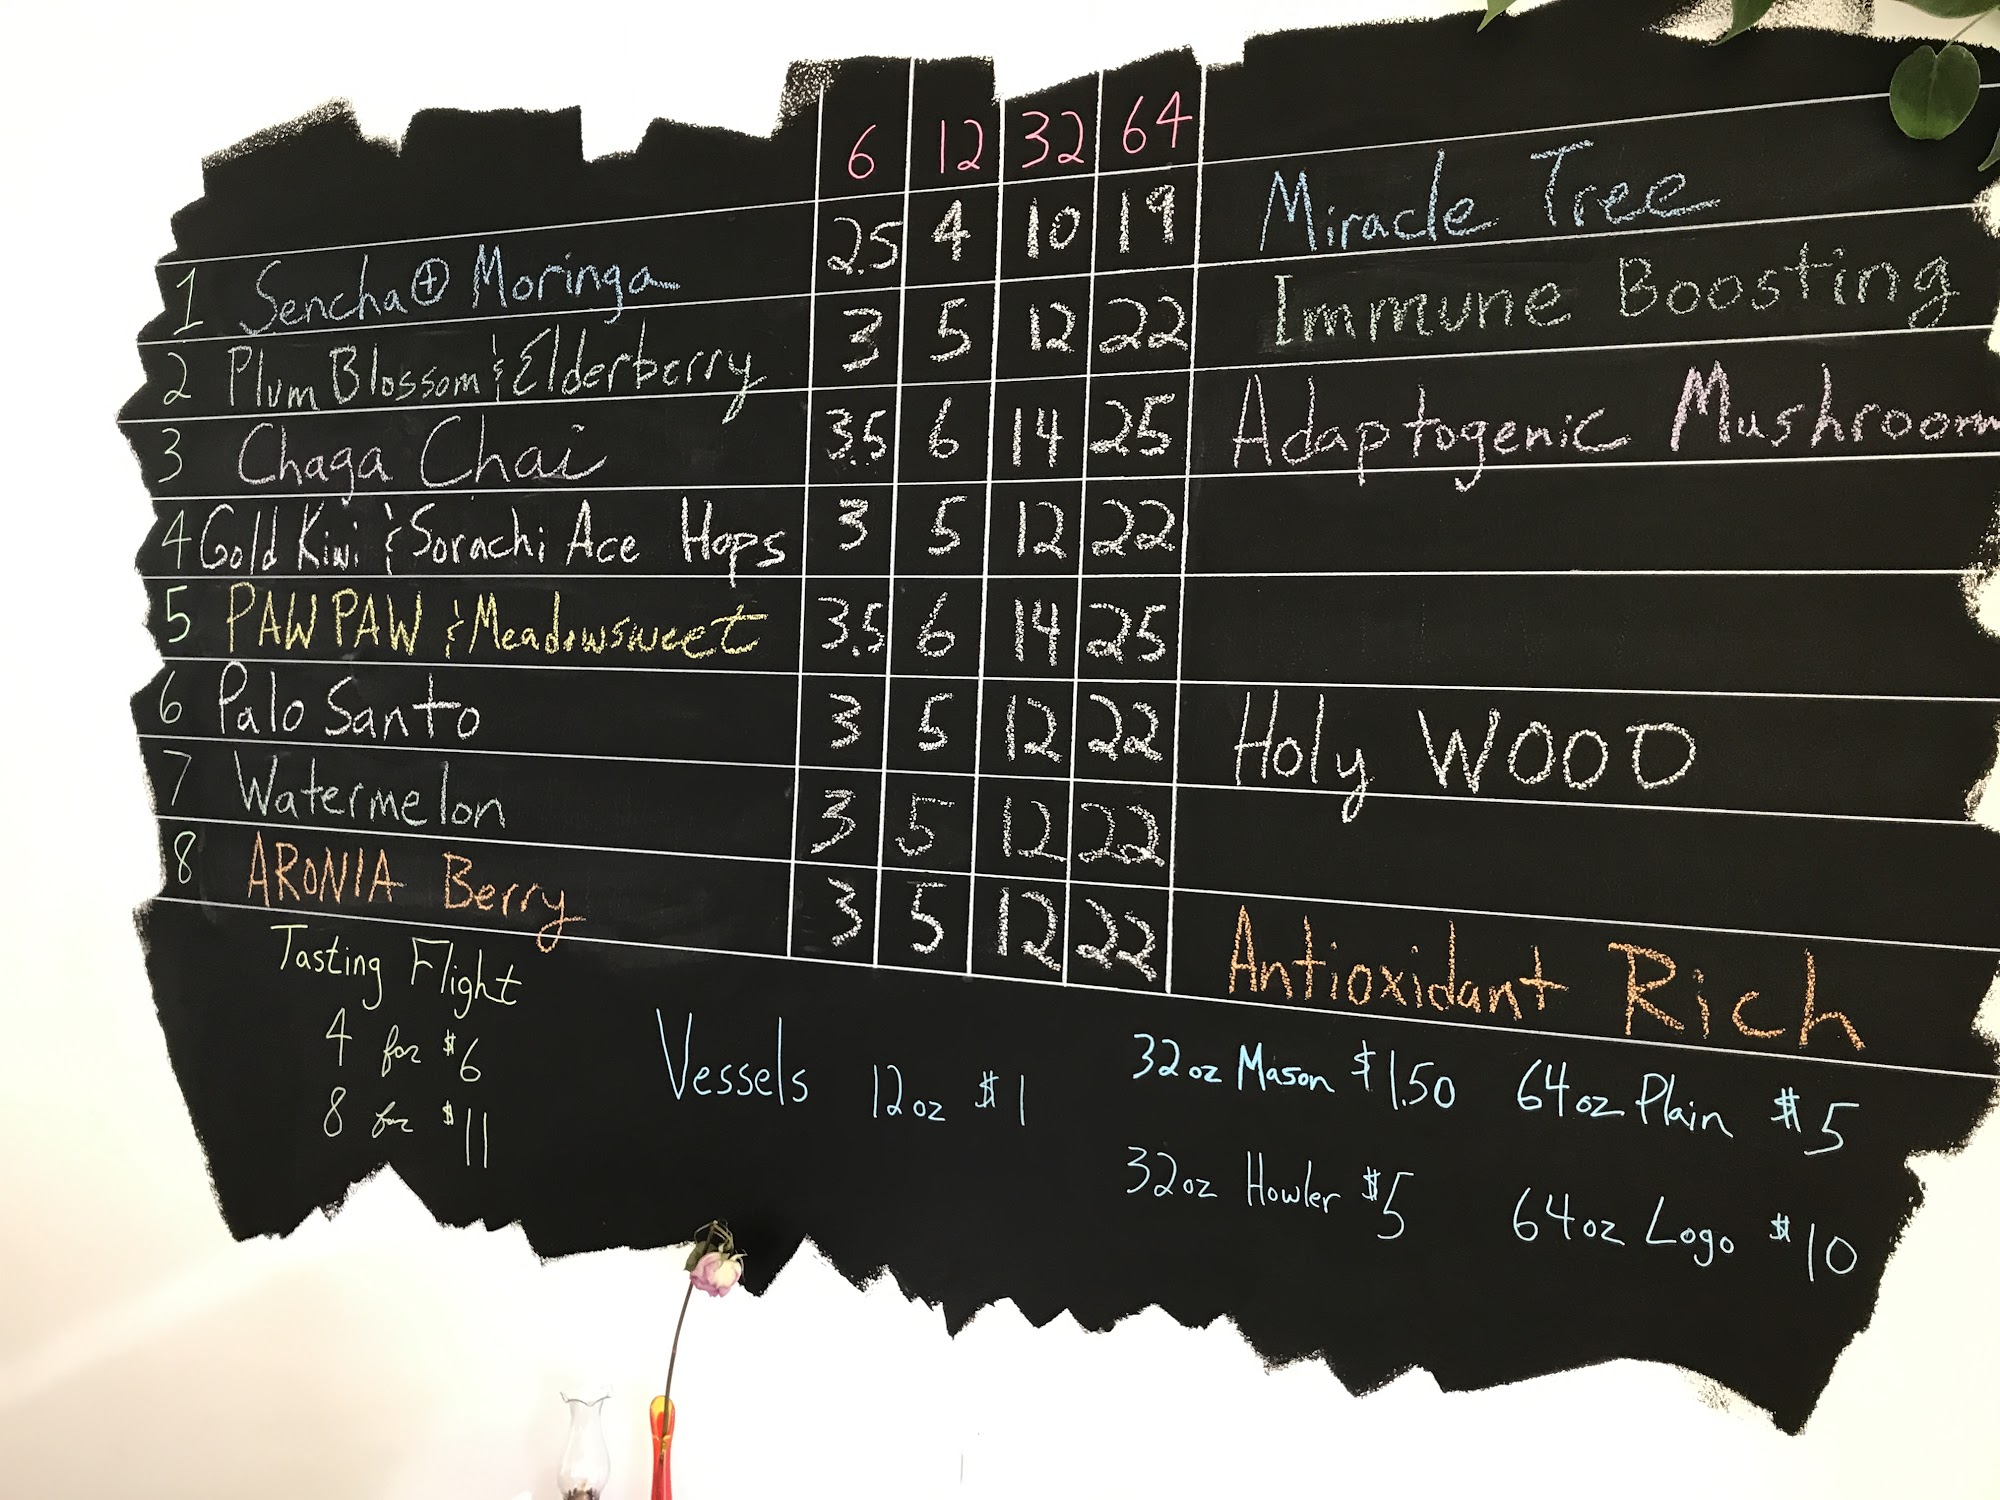 6 12 32 64
1 Sencha + Moringa 2.5 4 10 19 Miracle Tree
2 Plum Blossom & Elderberry 3 5 12 22 Immune Boosting
3 Chaga Chai 3.5 6 14 25 Adaptogenic Mushroom
4 Gold Kiwi & Sorachi Ace Hops 3 5 12 22
5 PAW PAW & Meadowsweet 3.5 6 14 25
6 Palo Santo 3 5 12 22 Holy WOOD
7 Watermelon 3 5 12 22
8 ARONIA Berry 3 5 12 22 Antioxidant Rich
Tasting Flight
4 for $6
8 for $11
Vessels 12oz $1
32oz Mason $1.50 64oz Plain $5
32oz Howler $5 64oz Logo $10